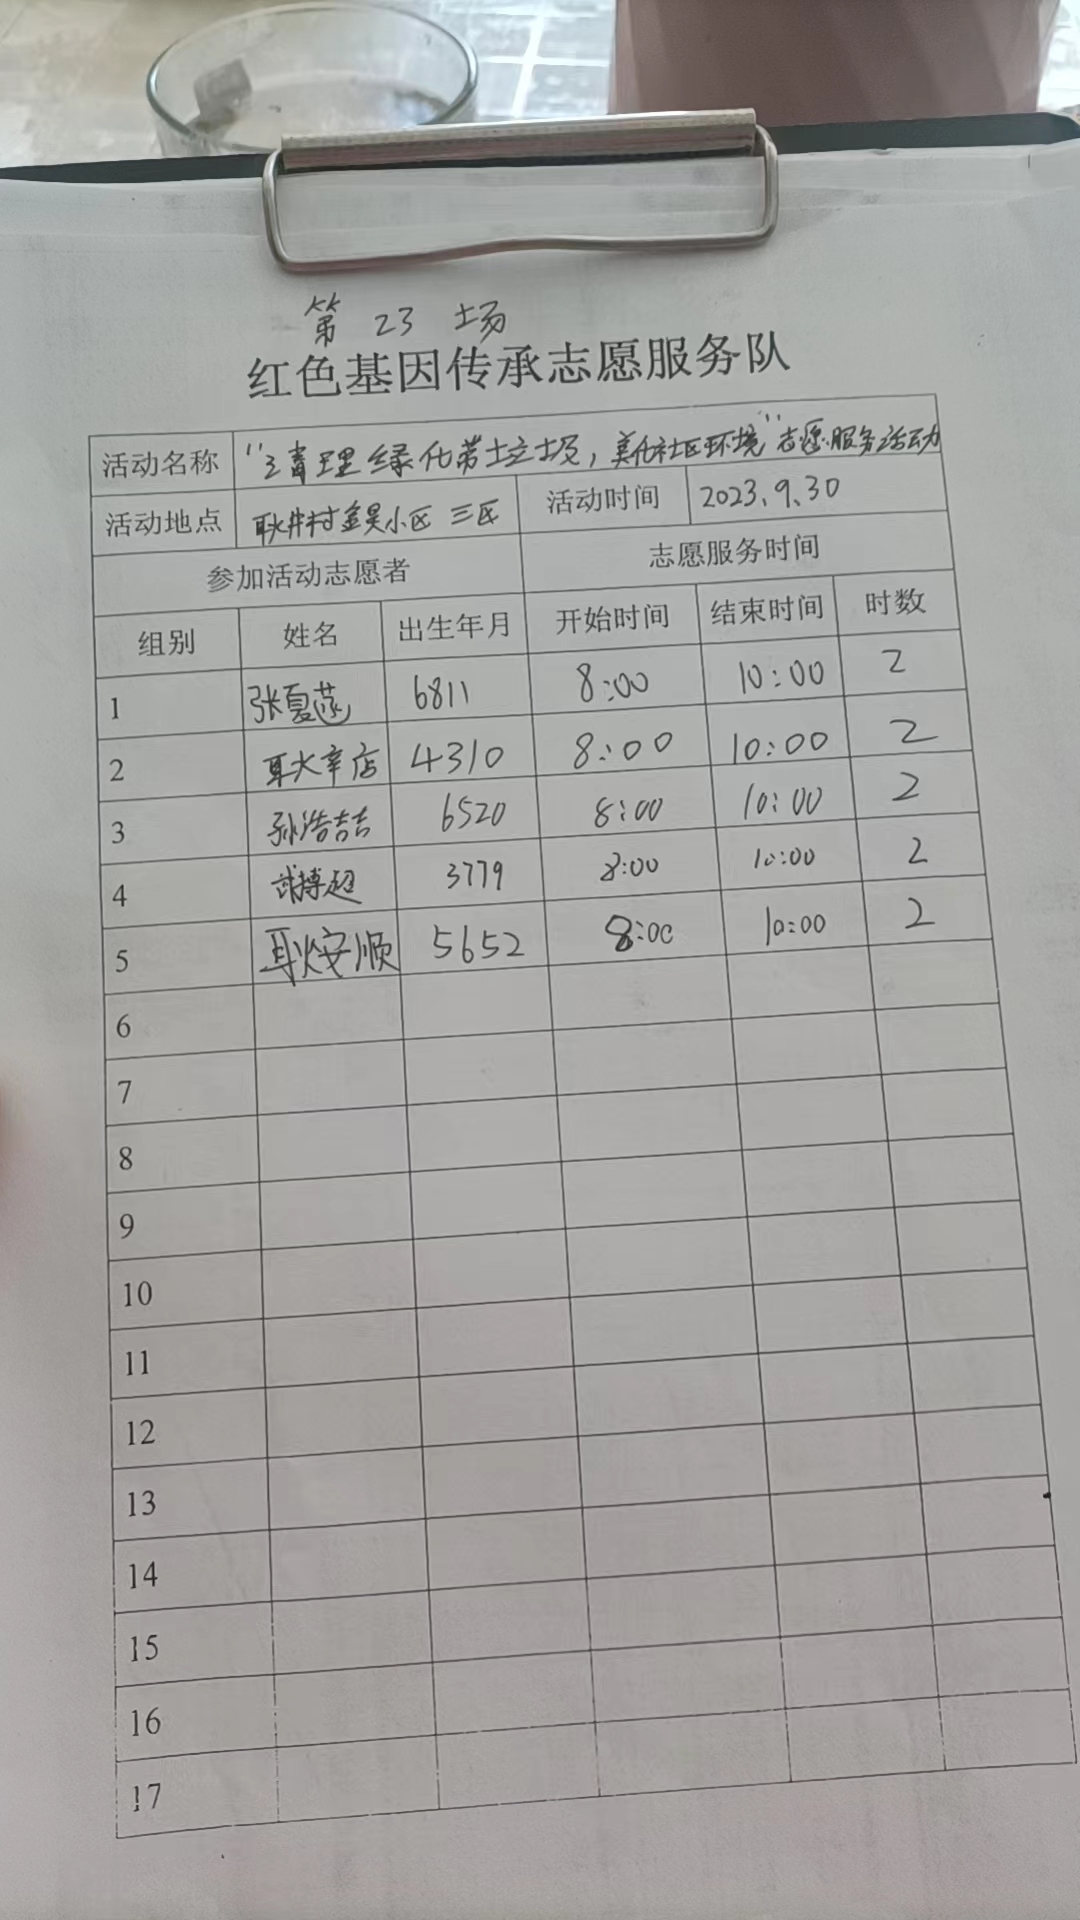 第 23 场
红色基因传承志愿服务队
活动名称 "清理绿化带垃圾，美化社区环境"志愿服务活动
活动地点 耿井村金昊小区 三区 活动时间 2023.9.30
参加活动志愿者 志愿服务时间
组别 姓名 出生年月 开始时间 结束时间 时数
1 张夏菡 6811 8:00 10:00 2
2 耿辛店 4310 8:00 10:00 2
3 孙浩喆 6520 8:00 10:00 2
4 武搏超 3779 8:00 10:00 2
5 耿安顺 5652 8:00 10:00 2
6
7
8
9
10
11
12
13
14
15
16
17